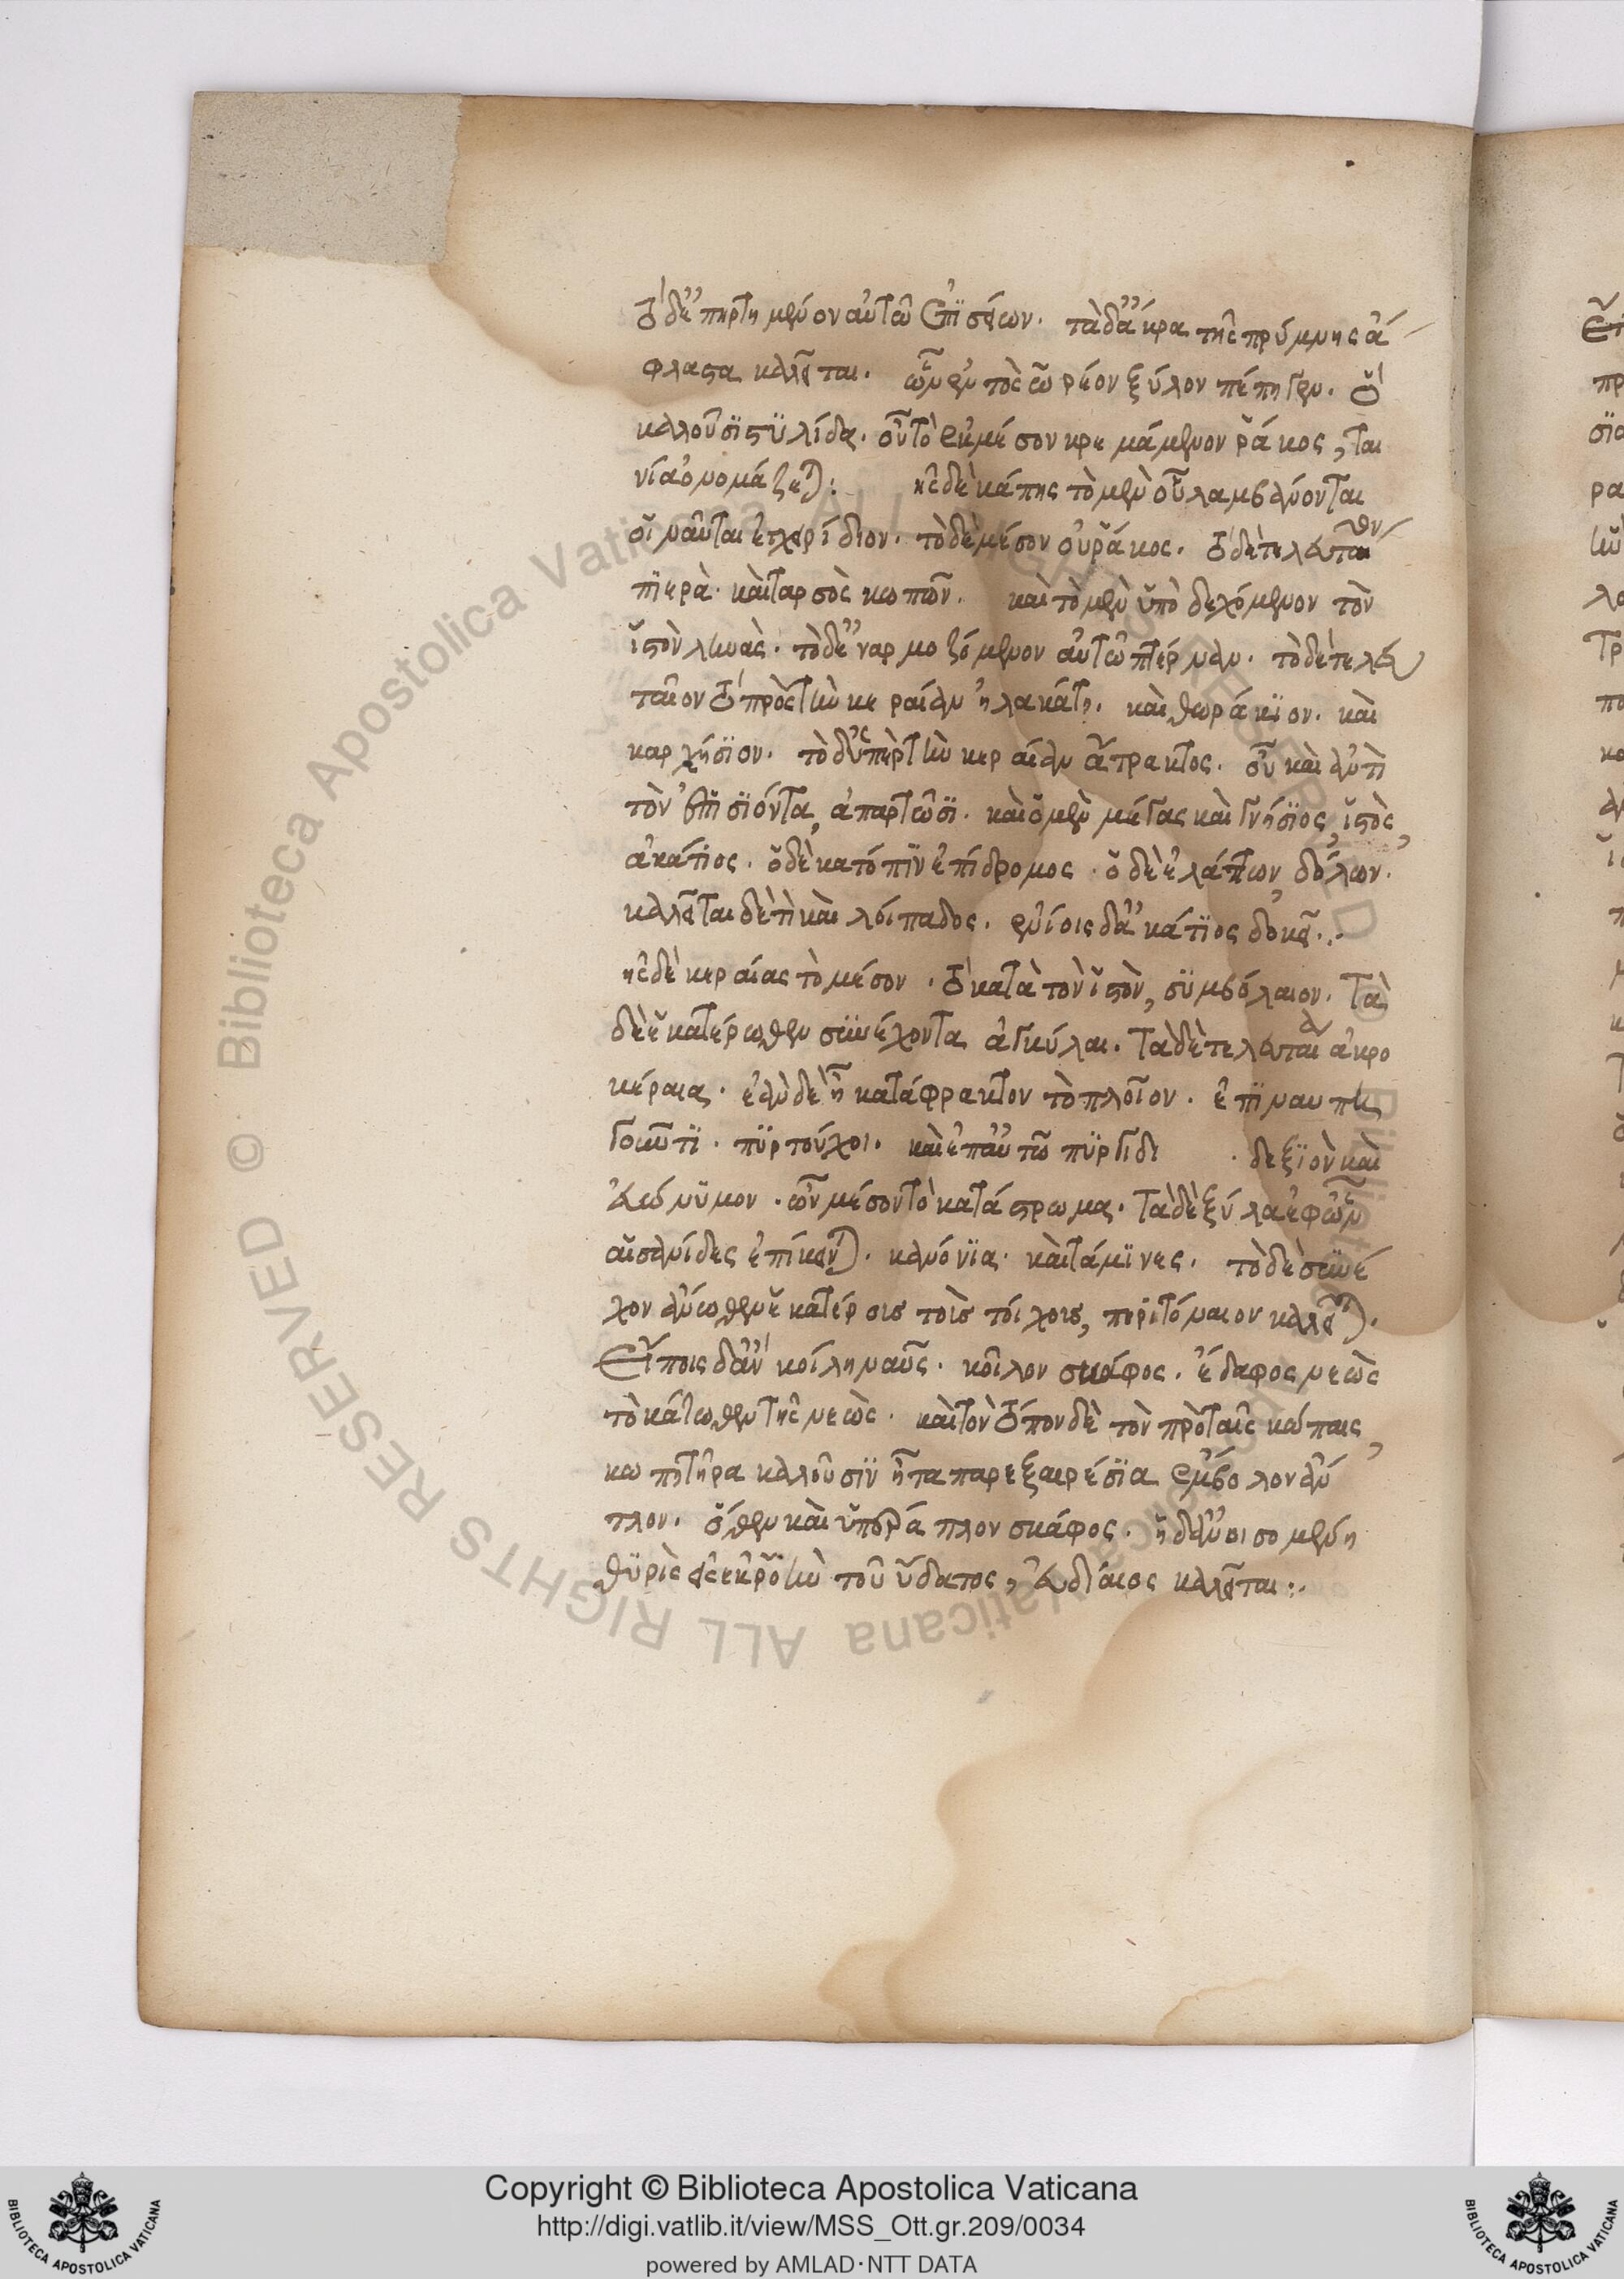 ὃ δ' ἐπήρτημένον αὐτῶ ἐπισείων. τὰ δ' ἄκρα τῆς πρύμνης ἄ
φλαστα καλεῖται. ὧν ἐντὸς ξύλον πέπηγεν. ὃ
καλοῦσϊ στϋλίδα. οὗ τὸ ἐκ μέσου κρεμάμενον ῥάκος, ται
νία ὀνομάζεται: τῆς δὲ κώπης τὸ μὲν οὗ λαμβάνονται
οἱ ναῦται ἐγχερίδιον. τὸ δὲ μέσον οὐράκος. τὸ δὲ τελευταῖον
πτερὰ. καὶ ταρσὸς κωπῶν. καὶ τὸ μὲν ὑποδεχόμενον τὸν
ἱστὸν ληνὸς. τὸ δ' ἐναρμοζόμενον αὐτῶ πτέρναν. τὸ δὲ τελευ
ταῖον τὸ πρὸς τὴν κεραίαν ἠλακάτη. καὶ θωράκϊον. καὶ
καρχήσϊον. τὸ δ' ὑπὲρ τὴν κεραίαν ἄτρακτος. οὗ καὶ αὐτὸ
τὸν ἐπισϊόντα, ἀπαρτῶσϊ. καὶ ὁ μὲν μέγας καὶ γνήσϊος, ἱστὸς,
ἀκάτϊος. ὁ δὲ κατόπϊν ἐπίδρομος. ὁ δὲ ἐλάττων, δόλων.
καλεῖται δέ τι καὶ λοίπαδος. ἐνίοις δ' ἀκάτϊος δοκεῖ.
τῆς δὲ κεραίας τὸ μέσον. τὸ κατὰ τὸν ἱστὸν, σϋμβόλαιον. τὰ
δὲ ἑκατέρωθεν σϋνέχοντα ἀγκύλαι. τὰ δὲ τελευταῖα ἀκρο
κέραια. ἐὰν δὲ ἦ κατάφρακτον τὸ πλοῖον. ἐπϊναυπη
γοῦντϊ. πϋργοῦχοι. καὶ ἐπ' αὐτῶν πϋργίδι . δεξϊὸν καὶ
εὐώνϋμον. ὧν μέσον τὸ κατάστρωμα. τὰ δὲ ξύλα ἐφ' ὧν
αἱ σανίδες ἐπίκεινται. κανόνϊα. καὶ στάμϊνες. τὸ δὲ σϋνέ
χον ἄνωθεν ἑκατέροις τοῖς τοίχοις, περϊτόναιον καλεῖται.
Εἴποις δ' ἂν κοίλη ναῦς. κοῖλον σκάφος. ἔδαφος νεὼς
τὸ κάτωθεν τῆς νεὼς. καὶ τὸν τόπον δὲ τὸν πρὸς ταῖς κώπαις,
κωπητῆρα καλοῦσϊν ἢ τὰ παρεξαιρέσϊα ἔμβολον ἄν
τλον. ὅθεν καὶ ὑπέραντλον σκάφος. ἡ δ' ἀνοισομένη
θϋρὶς εἰς ἐκροὴν τοῦ ὕδατος, εὐδίαιος καλεῖται:.
Copyright © Biblioteca Apostolica Vaticana
http://digi.vatlib.it/view/MSS_Ott.gr.209/0034
powered by AMLAD·NTT DATA